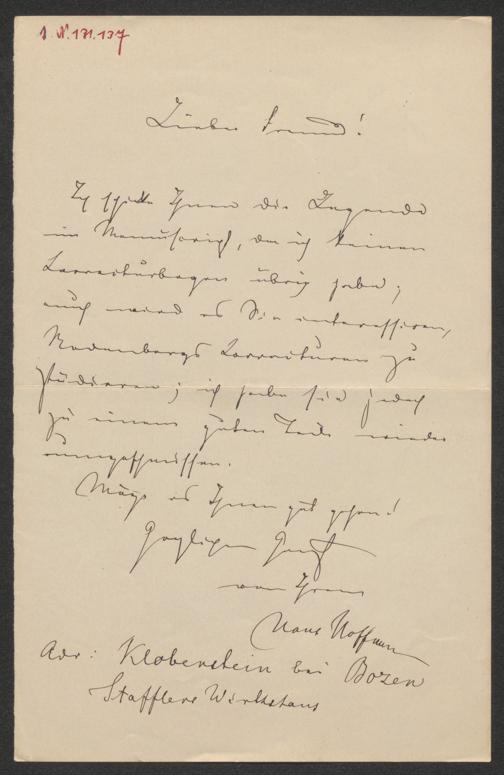 I. N. 171.137
Lieber Freund!
Ich schicke Ihnen die Legende
im Manuscript, da ich keinen
Correcturbogen übrig habe;
auch wird es Sie interessiren,
Rodenbergs Correcturen zu
studieren; ich habe sie jedoch
zu einem guten Teile wieder
ausgeschmissen.
Möge es Ihnen gut gehen!
Herzlichen Gruß
von Ihrem
Hans Hoffmann
Adr: Klobenstein bei Bozen
Stafflers Wirtshaus